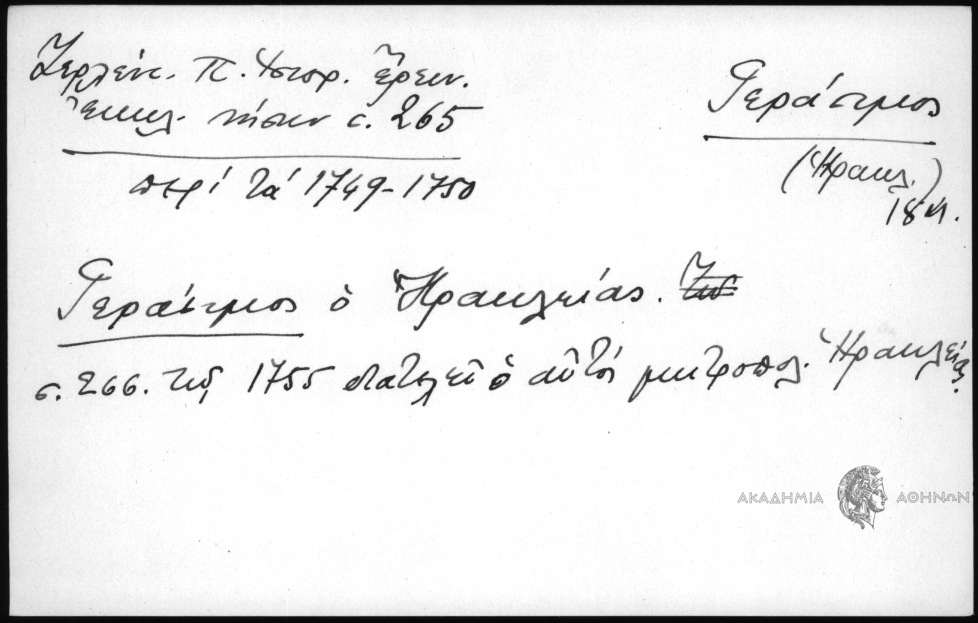 Ζερλέντ. Π. Ἱστορ. ἔρευν.
Ἐκκλ. νήσων σ. 265
περὶ τὰ 1749-1750
Γεράσιμος
(Ἡρακλ.)
18 αἰ.
Γεράσιμος ὁ Ἡρακλείας.
σ. 266. τῷ 1755 διατελεῖ ὁ αὐτὸς μητροπολ. Ἡρακλείας.
ΑΚΑΔΗΜΙΑ ΑΘΗΝΩΝ